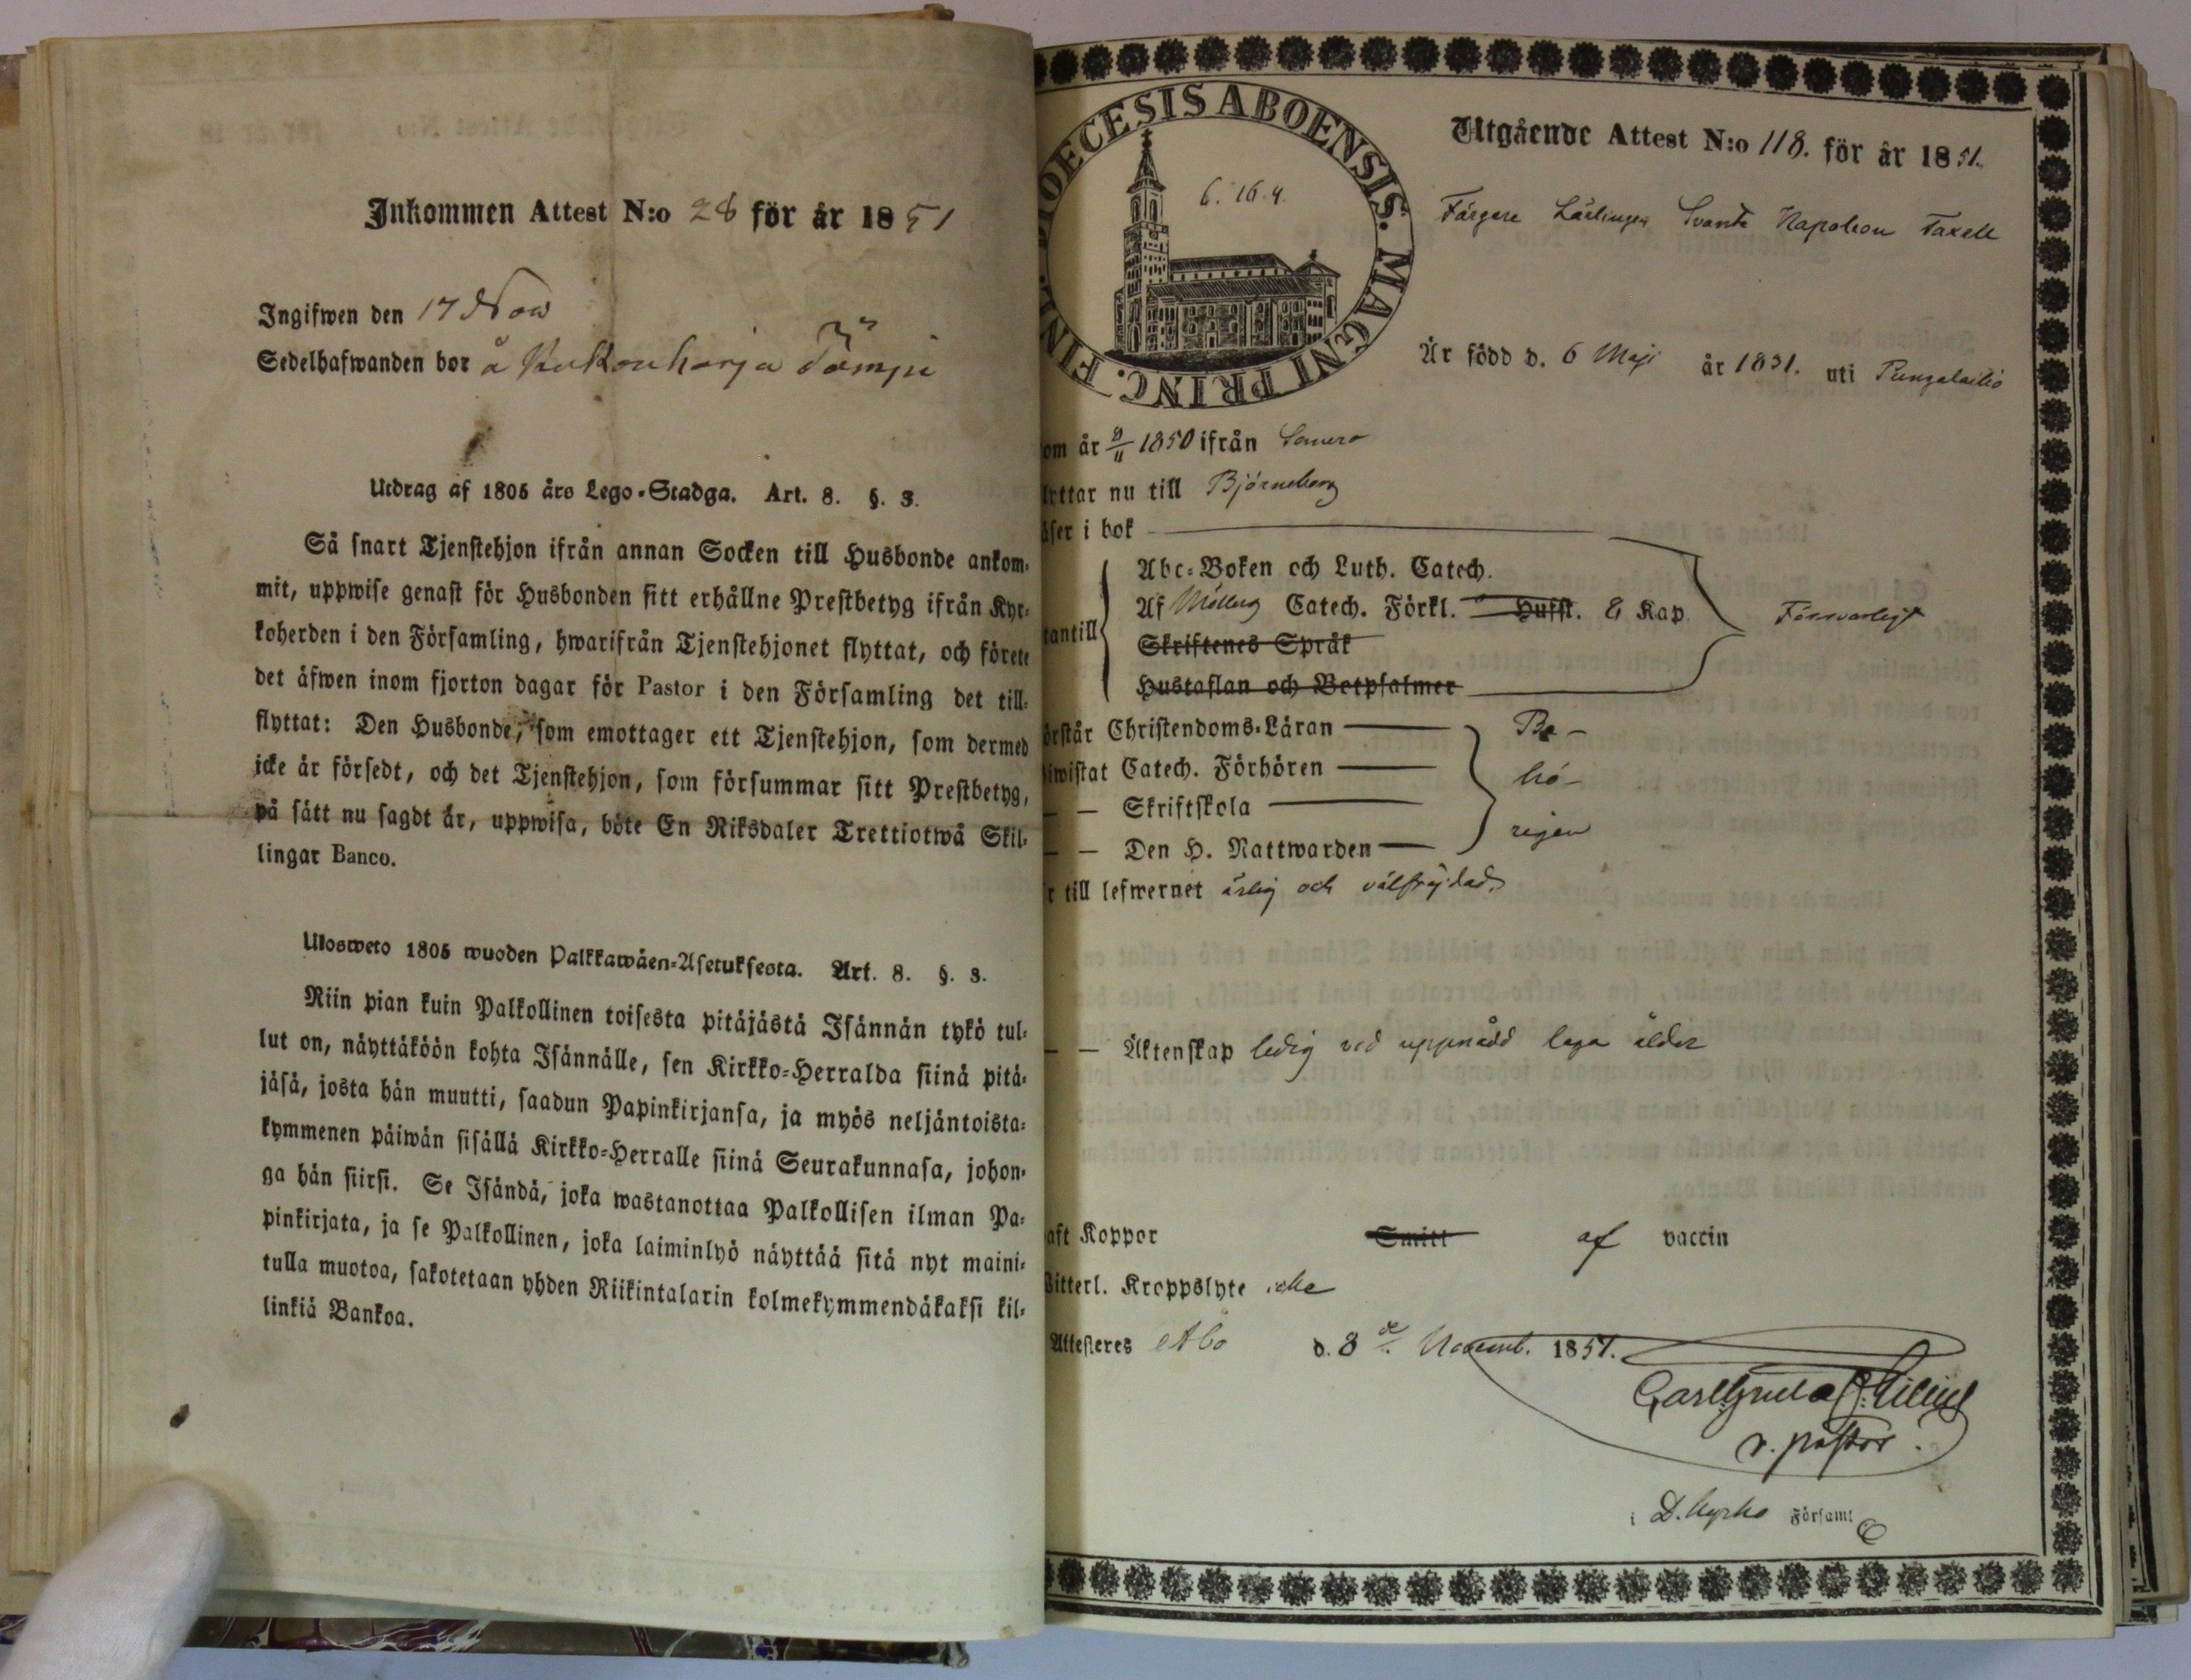 Inkommen Attest N:o 28 för år 1851
Ingifwen den 17 Nov
Sedelhafwanden bor å
Utdrag af 1805 års Lego-Stadga. Art. 8. §. 3.
Så snart Tjenstehjon ifrån annan Socken till Husbonde ankom-
mit, uppwise genast för Husbonden sitt erhållne Prestbetyg ifrån Kyr-
koherden i den Församling, hwarifrån Tjenstehjonet flyttat, och förete
det äfwen inom fjorton dagar för Pastor i den Församling det till-
flyttat: Den Husbonde, som emottager ett Tjenstehjon, som dermed
icke är försedt, och det Tjenstehjon, som försummar sitt Prestbetyg,
på sätt nu sagdt är, uppwisa, böte En Riksdaler Trettiotwå Skil-
lingar Banco.
Ulosweto 1805 wuoden Palkkawäen-Asetuksesta. Art. 8. §. 3.
Niin pian kuin Palkollinen toisesta pitäjästä Isännän tykö tul-
lut on, näyttäköön kohta Isännälle, sen Kirkko-Herralda siinä pitä-
jäsä, josta hän muutti, saadun Papinkirjansa, ja myös neljäntoista-
kymmenen päiwän sisällä Kirkko-Herralle siinä Seurakunnasa, johon-
ga hän siirsi. Se Isändä, joka wastanottaa Palkollisen ilman Pa-
pinkirjata, ja se Palkollinen, joka laiminlyö näyttää sitä nyt maini-
tulla muotoa, sakotetaan yhden Riikintalarin kolmekymmendäkaksi kil-
linkiä Bankoa.
DIOECESIS ABOENSIS. MAGNI PRINC. FINL.
6. 16. 4.
Utgående Attest N:o 118. för år 1851.
Färgare Lärlingen Svante Napoleon Taxell
Är född d. 6 Maji år 1831. uti Pungalaitio
om år 9/11 1850 ifrån Somero
lyttar nu till Björneborg
äser i bok
Abc-Boken och Luth. Catech.
Af Möllers Catech. Förkl. Hufst. & Kap.
Försvarligt
tantill
Skriftenes Språk
Hustaflan och Botpsalmer
örstår Christendoms-Läran Be-
iwistat Catech. Förhören hö-
— — Skriftskola
— — Den H. Nattwarden rigen
r till lefwernet ärlig och välfrejdad.
— — Äktenskap ledig vid uppnådd laga ålder
aft Koppor Smitt af vaccin
Witterl. Kroppslyte icke
Attesteres Åbo d. 8de Novemb. 1851.
v. pastor.
i D. kyrko Församl